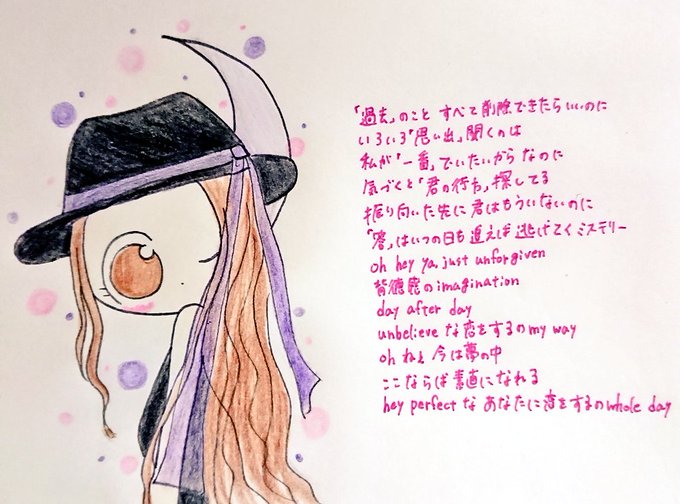 「過去」のこと すべて削除できたらいいのに
いろいろ「思い出」聞くのは
私が「一番」でいたいから なのに
気づくと「君の行方」探してる
振り向いた先に君はもういないのに
「答」はいつの日も追えば逃げてくミステリー
oh hey ya, just unforgiven
背徳感のimagination
day after day
unbelieve な恋をするのmy way
oh ねぇ 今は夢の中
ここならば素直になれる
hey perfect な あなたに恋をするのwhole day